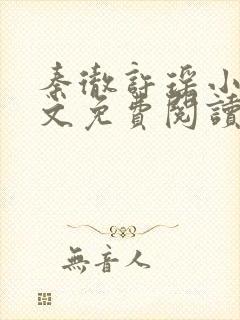 秦徹許瑤小
文免費閱讀
無音人